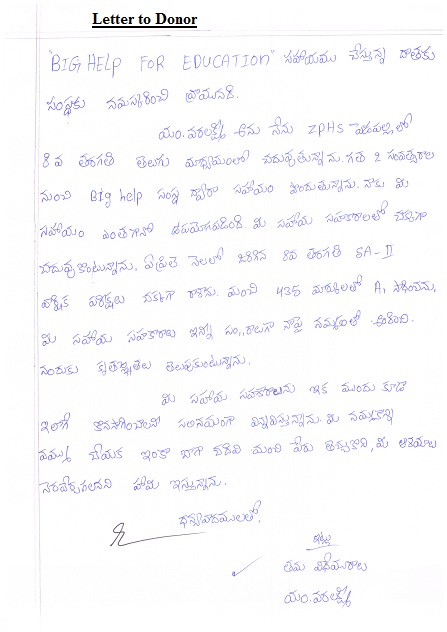 Letter to Donor
"BIG HELP FOR EDUCATION" సహాయము చేస్తున్న దాతకు
సంస్థకు నమస్కరించి వ్రాయునది.
యం. వరలక్ష్మి అను నేను ZPHS లో
8వ తరగతి తెలుగు మాధ్యమంలో చదువుతున్నాను. గత 2 సంవత్సరాల
నుంచి Big help సంస్థ ద్వారా సహాయం పొందుతున్నాను. నాకు మీ
సహాయం ఎంతగానో ఉపయోగపడింది. మీ సహాయ సహకారాలతో చక్కగా
చదువుకొంటున్నాను. ఏప్రిల్ నెలలో జరిగిన 8వ తరగతి SA-II
పరీక్షలు చక్కగా రాశాను. మంచి 435 మార్కులతో A1 సాధించాను.
మీ సహాయ సహకారాలు ఇన్ని సం,,రాలుగా నాపై నమ్మకంతో ఉంచారు.
అందుకు కృతజ్ఞతలు తెలుపుకుంటున్నాను.
మీ సహాయ సహకారాలను ఇక ముందు కూడా
ఇలాగే కొనసాగించాలని సవినయంగా విన్నవిస్తున్నాను. మీ నమ్మకాన్ని
వమ్ము చేయక ఇంకా బాగా చదివి మంచి పేరు తెచ్చుకొని, మీ ఆశయాలు
నెరవేర్చగలనని హామీ ఇస్తున్నాను.
ధన్యవాదములతో,
ఇట్లు
తమ విధేయురాలు
యం. వరలక్ష్మి